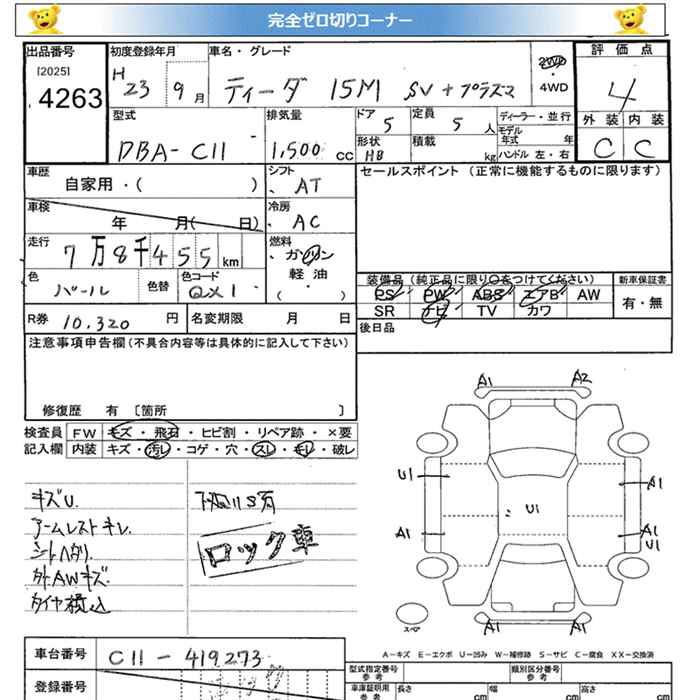 完全ゼロ切りコーナー
出品番号 初度登録年月 車名・グレード 評価点
[2025] 4263 H 23 9月 ティーダ 15M SV+プラズマ 2WD・4WD 4
型式 排気量 ドア 5 定員 5人 ディーラー・並行 外装 内装
モデル年式 年
DBA-C11 1,500cc 形状 HB 積載 kg ハンドル 左・右 C C
車歴 シフト セールスポイント(正常に機能するものに限ります)
自家用・( ) AT
車検 冷房
年 月( 日) AC
走行 燃料
7万8千455km ガソリン
軽油
( ・ )
色 色替 色コード 装備品(純正品に限り○をつけてください) 新車保証書
パール QX1 PS PW ABS エアB AW 有・無
SR ナビ TV カワ
R券 10,320円 名変期限 月 日 後日品
注意事項申告欄(不具合内容等は具体的に記入して下さい)
修復歴 有 [箇所 ]
検査員 FW キズ・飛石・ヒビ割・リペア跡・×要
記入欄 内装 キズ・汚レ・コゲ・穴・スレ・モレ・破レ
A1 A2
U1 A1
U1
A1 A1
U1
A1 A1
スペア
キズU.
アームレストキレ.
シートヘタリ.
外AWキズ.
タイヤ積込
下廻りS有
ロック車
A-キズ E-エクボ U-凹み W-補修跡 S-サビ C-腐食 XX-交換済
車台番号 C11-419273
登録番号
型式指定番号 参考 類別区分番号 参考
車庫証明用 参考 長さ cm 幅 cm 高さ cm